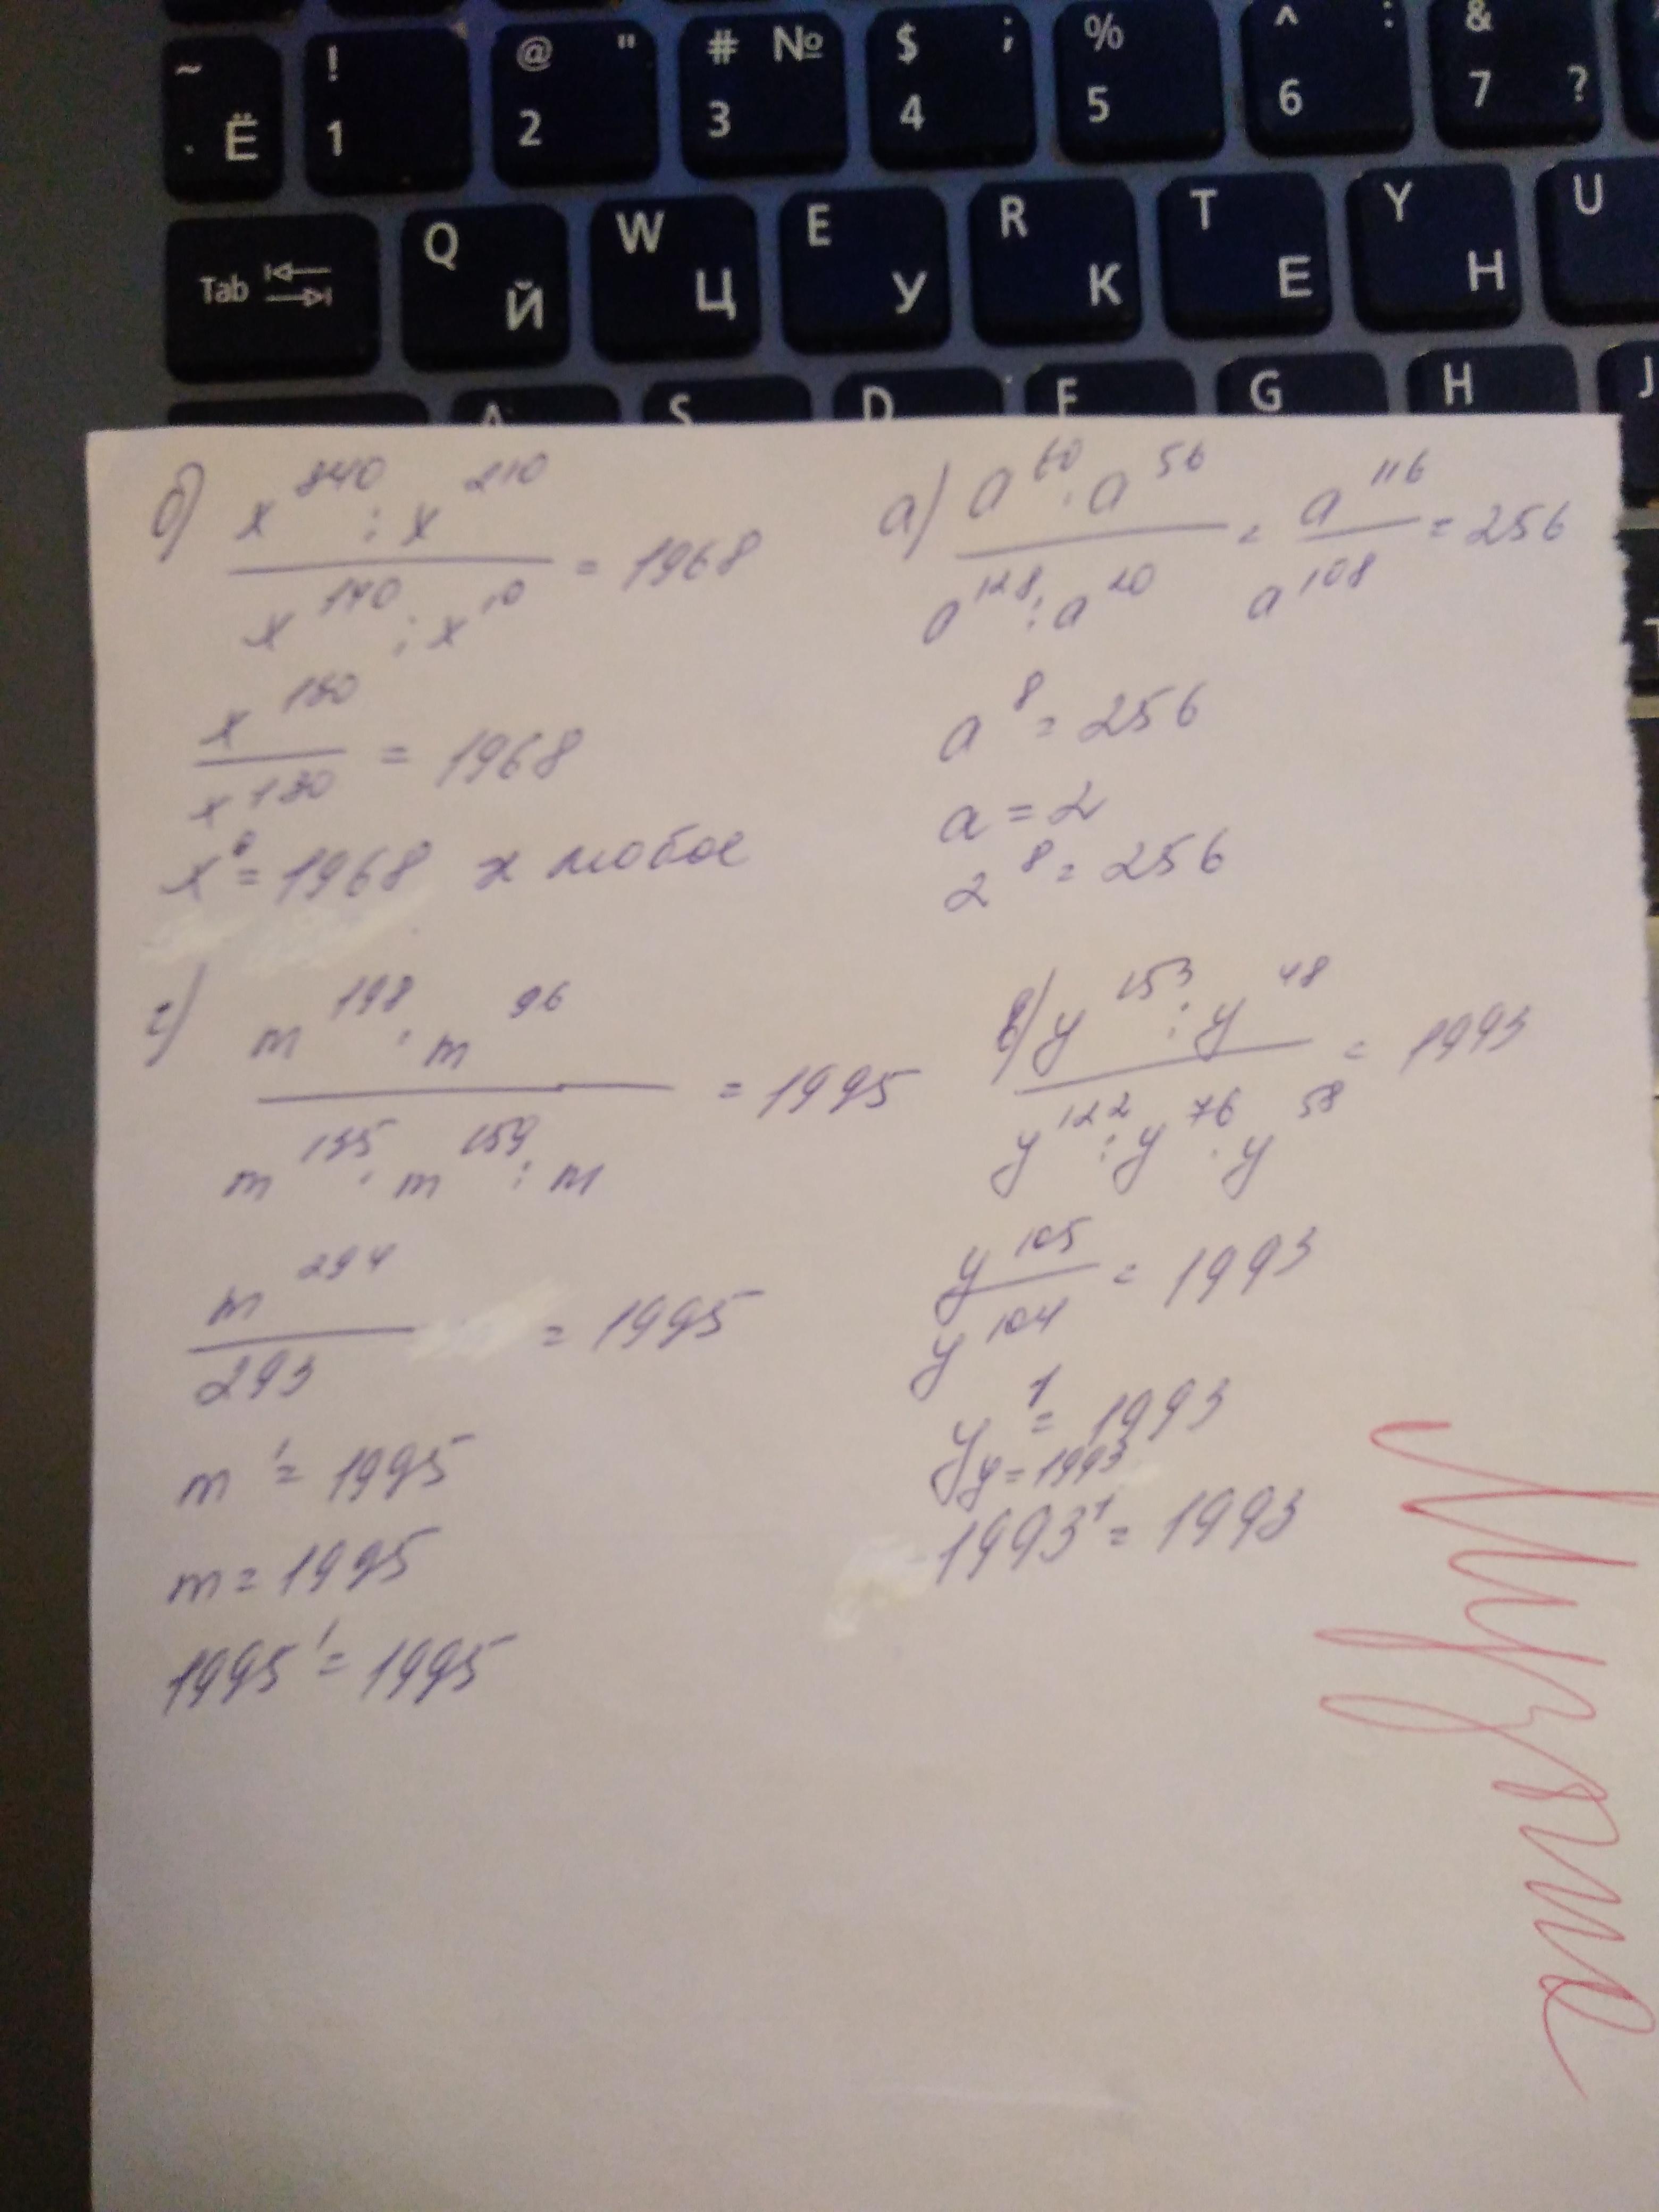 ~ Ё
! 1
@ " 2
# № 3
$ ; 4
% 5
^ : 6
& 7 ?
Tab
Q Й
W Ц
E У
R К
T Е
Y Н
U
A S D F G H J
б) x³⁴⁰ : x²¹⁰ / x¹⁴⁰ : x¹⁰ = 1968
x¹³⁰ / x¹³⁰ = 1968
x⁰ = 1968 x любое
а) a⁶⁰ · a⁵⁶ / a¹²⁸ : a²⁰ = a¹¹⁶ / a¹⁰⁸ = 256
a⁸ = 256
a = 2
2⁸ = 256
г) m¹⁹⁸ · m⁹⁶ / m¹³⁵ · m¹⁵⁹ : m = 1995
m²⁹⁴ / 293 = 1995
m¹ = 1995
m = 1995
1995¹ = 1995
в) y¹⁵³ : y⁴⁸ / y¹²² : y⁷⁶ · y⁵⁸ = 1993
y¹⁰⁵ / y¹⁰⁴ = 1993
y¹ = 1993
y = 1993
1993¹ = 1993